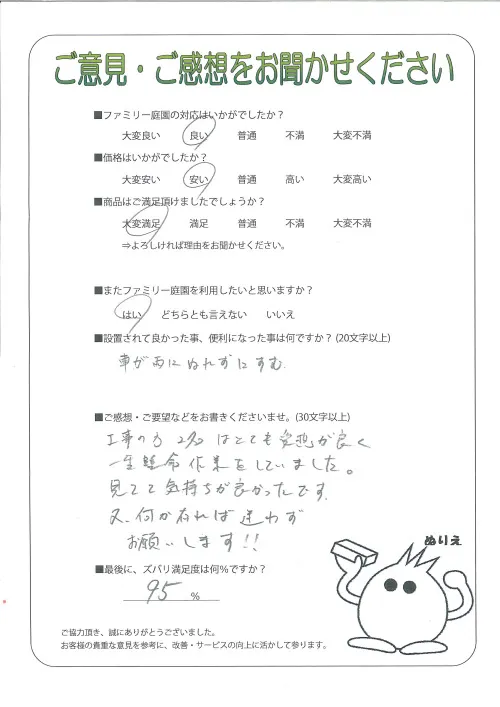 ご意見・ご感想をお聞かせください
■ファミリー庭園の対応はいかがでしたか？
大変良い 良い 普通 不満 大変不満
■価格はいかがでしたか？
大変安い 安い 普通 高い 大変高い
■商品はご満足頂けましたでしょうか？
大変満足 満足 普通 不満 大変不満
⇒よろしければ理由をお聞かせください。
■またファミリー庭園を利用したいと思いますか？
はい どちらとも言えない いいえ
■設置されて良かった事、便利になった事は何ですか？(20文字以上)
車が雨にぬれずにすむ
■ご感想・ご要望などをお書きくださいませ。(30文字以上)
工事の方 はとても愛想が良く
一生懸命作業をしていました。
見てて気持ちが良かったです。
又、何か有れば迷わず
お願いします!!
ぬりえ
■最後に、ズバリ満足度は何％ですか？
95 %
ご協力頂き、誠にありがとうございました。
お客様の貴重な意見を参考に、改善・サービスの向上に活かして参ります。